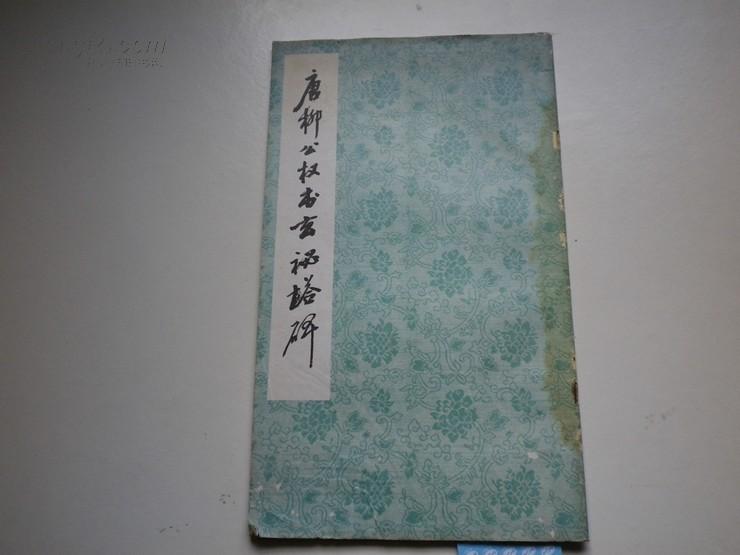 唐柳公权书玄祕塔碑